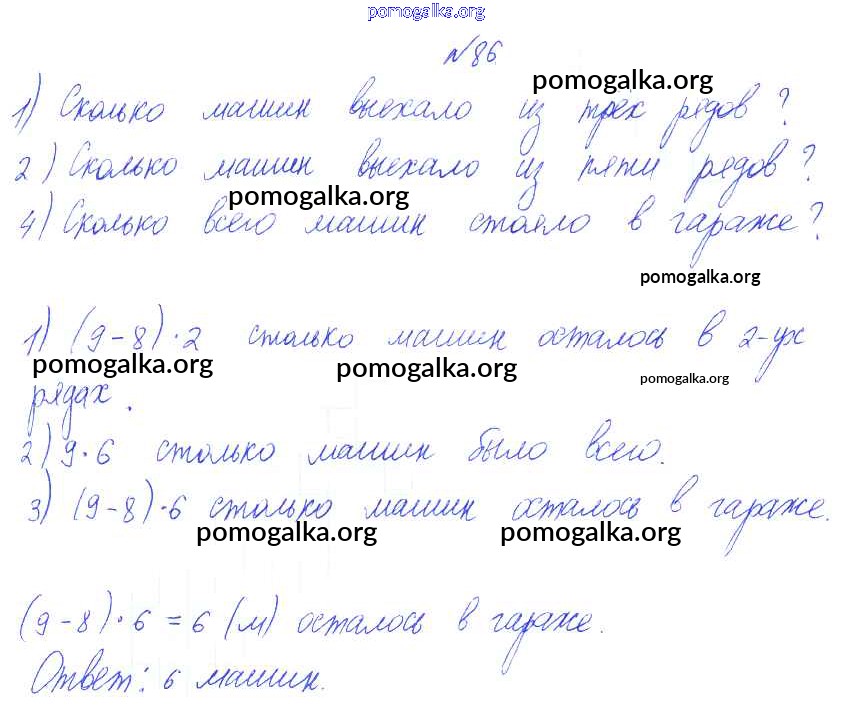 pomogalka.org
№86.
pomogalka.org
1) Сколько машин выехало из трёх рядов?
2) Сколько машин выехало из пяти рядов?
pomogalka.org
4) Сколько всего машин стояло в гараже?
pomogalka.org
1) (9-8)·2 столько машин осталось в 2-ух
pomogalka.org pomogalka.org pomogalka.org
рядах.
2) 9·6 столько машин было всего.
3) (9-8)·6 столько машин осталось в гараже.
pomogalka.org pomogalka.org
(9-8)·6=6 (м) осталось в гараже.
Ответ: 6 машин.